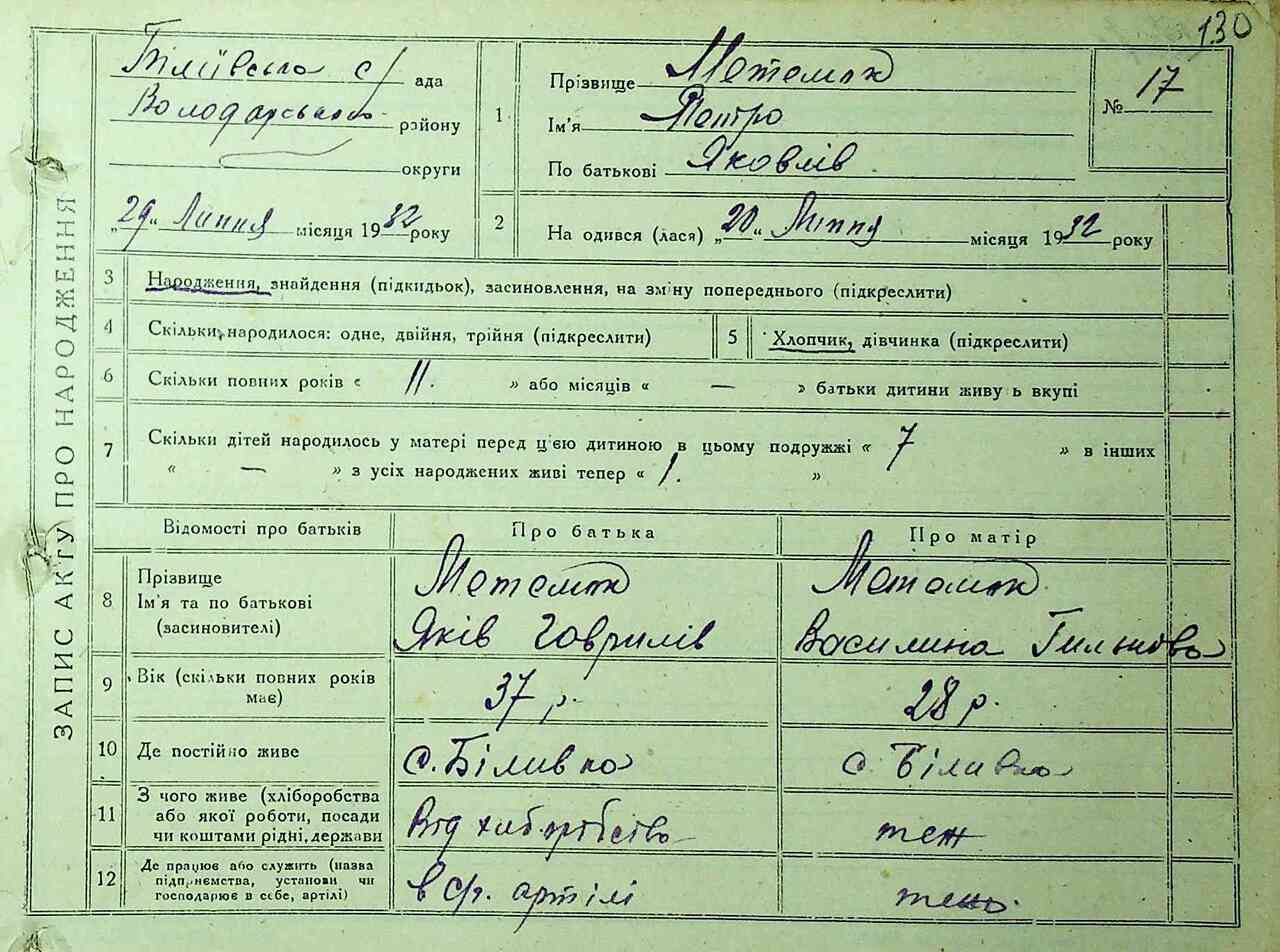 130
ЗАПИС АКТУ ПРО НАРОДЖЕННЯ
Біліївська с/ рада
Володарського району
округи
„29“ Липня місяця 1932 року
1 Прізвище
Ім'я Петро
По батькові Яковлів
№ 17
2 На одився (лася) „20“ Липня місяця 1932 року
3 Народження, знайдення (підкидьок), засиновлення, на зміну попереднього (підкреслити)
4 Скільки народилося: одне, двійня, трійня (підкреслити) 5 Хлопчик, дівчинка (підкреслити)
6 Скільки повних років « 11. » або місяців « — » батьки дитини живу ь вкупі
7 Скільки дітей народилось у матері перед цією дитиною в цьому подружжі « 7 » в інших
« — » з усіх народжених живі тепер « 1. »
Відомості про батьків Про батька Про матір
8 Прізвище
Ім'я та по батькові Яків Гаврилів Василина
(засиновителі)
9 Вік (скільки повних років має) 37 р. 28 р.
10 Де постійно живе с. Біливка с. Біливка
11 З чого живе (хліборобства
або якої роботи, посади
чи коштами рідні, держави Від хліборобства теж
12 Де працює або служить (назва
підприємства, установи чи
господарює в себе, артілі) в с/г. артілі теж